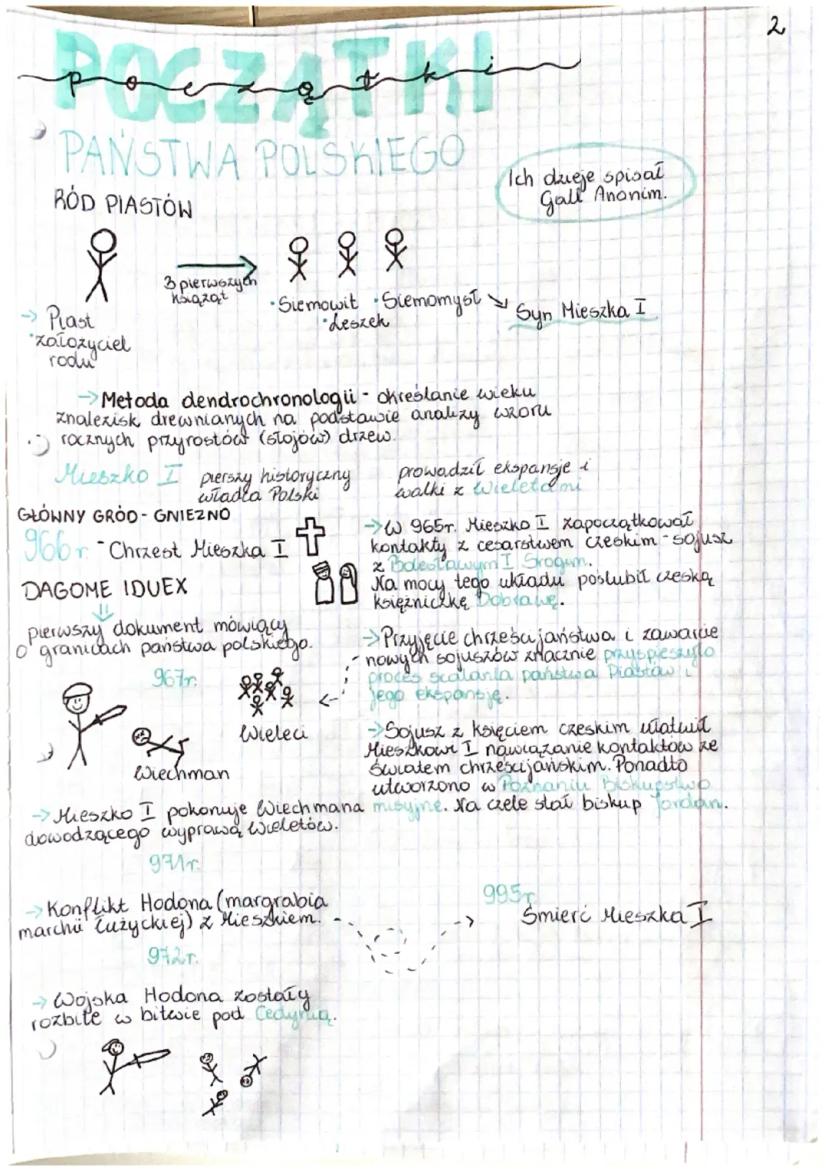 2
POCZĄTKI
początki
PAŃSTWA POLSKIEGO
Ich dzieje spisał
Gall Anonim.
RÓD PIASTÓW
3 pierwszych
książąt
→ Piast
•założyciel
rodu
•Siemowit •Siemomysł
•Leszek
Syn Mieszka I
→Metoda dendrochronologii - określanie wieku
znalezisk drewnianych na podstawie analizy wzoru
rocznych przyrostów (słojów) drzew.
Mieszko I pierszy historyczny
władca Polski
prowadził ekspansje i
walki z Wieletami
GŁÓWNY GRÓD - GNIEZNO
966r - Chrzest Mieszka I
DAGOME IDUEX
pierwszy dokument mówiący
o granicach państwa polskiego.
→W 965r. Mieszko I zapoczątkował
kontakty z cesarstwem czeskim - sojusz
z Bolesławym I Srogim.
Na mocy tego układu poślubił czeską
księżniczkę Dobrawę.
→Przyjęcie chrześcijaństwa i zawarcie
nowych sojuszów znacznie przyspieszyło
proces scalania państwa Piastów i
jego ekspansję.
967r.
Wieleci
Wiechman
→Sojusz z księciem czeskim ułatwił
Mieszkowi I nawiązanie kontaktów ze
światem chrześcijańskim. Ponadto
utworzono w Poznaniu Biskupstwo
misyjne. Na czele stał biskup Jordan.
→Mieszko I pokonuje Wiechmana
dowodzącego wyprawą Wieletów.
971r.
→Konflikt Hodona (margrabia
marchii Łużyckiej) z Mieszkiem.
995r
Śmierć Mieszka I
972r.
→ Wojska Hodona zostały
rozbite w bitwie pod Cedynią.